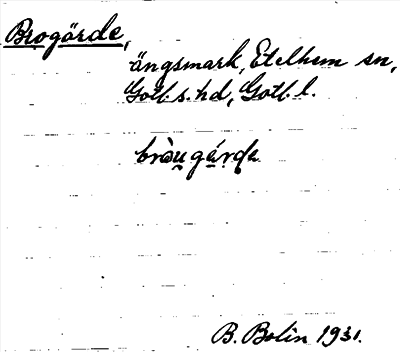 Brogärde,
ängsmark, Etelhem sn,
Gotl. s. hd, Gotl. l.
bròu̯ gá̱rdɐ
B. Bolin 1931.